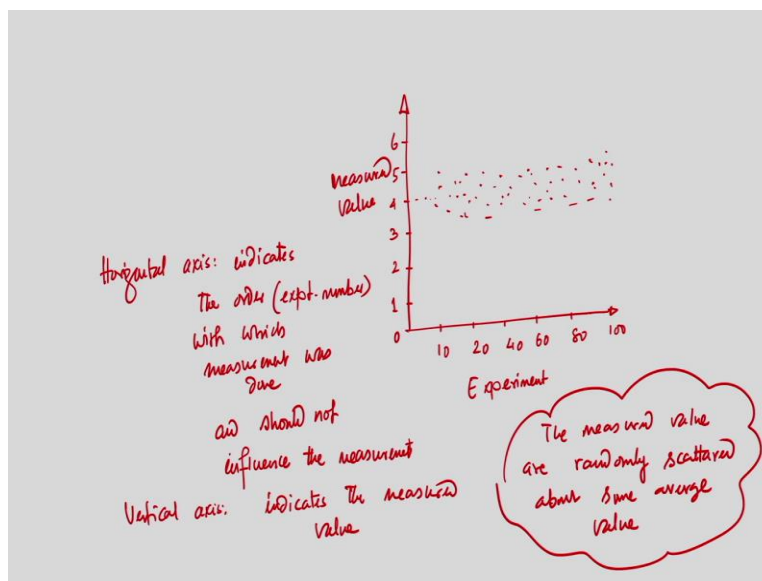 6
measured 5
value 4
3
2
1
0
10 20 40 60 80 100
Experiment
Horizontal axis: indicates
The order (expt. number)
with which
measurement was
done
and should not
influence the measurement
Vertical axis: indicates the measured
value
The measured value
are randomly scattared
about some average
value